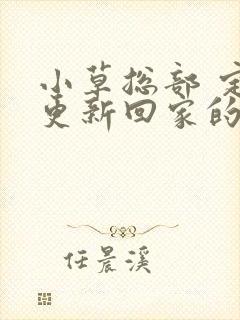 小草总部 定
更新回家的
任晨溪